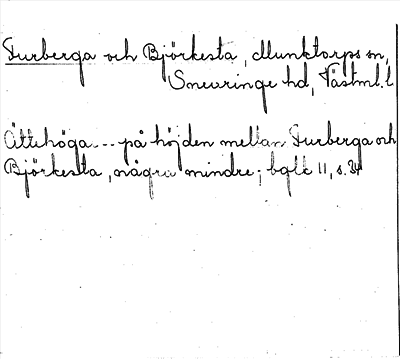 Furberga och Björkesta, Munktorps sn,
Snevringe hd, Västml. l
Ättehöga... på höjden mellan Furberga och
Björkesta, några mindre; bglc 11, s. 34